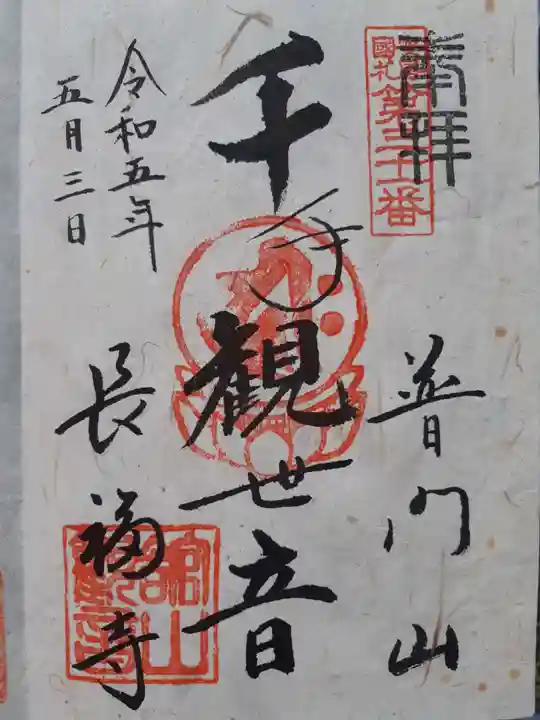 奉拝
國札第三十二番
普門山
千手観世音
長福寺
令和五年
五月三日